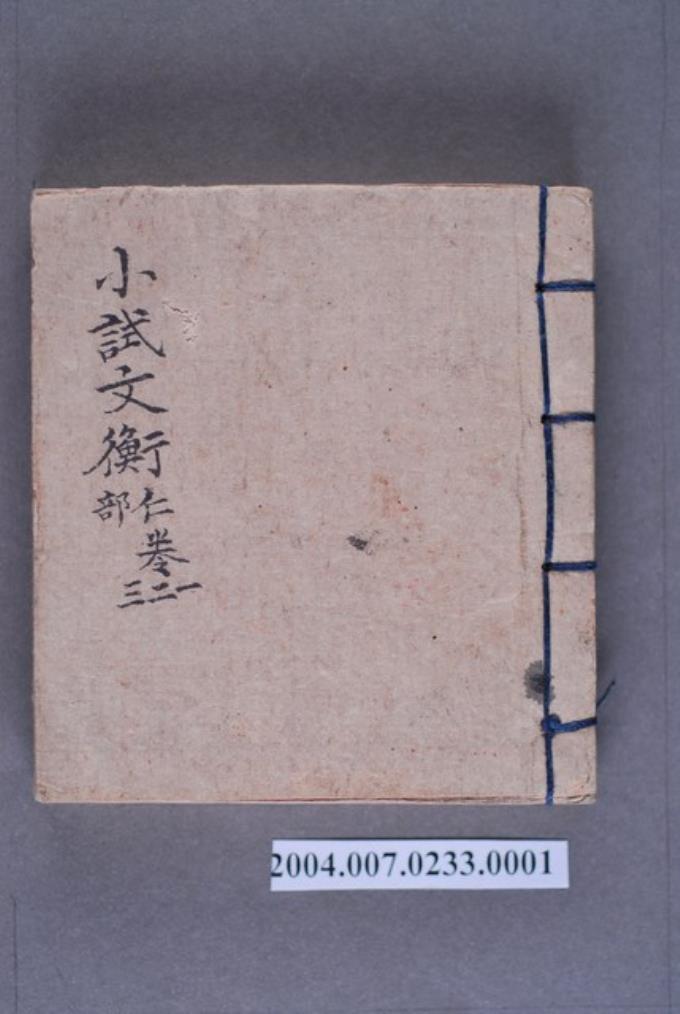 小試文衡
仁部
卷
一二三
2004.007.0233.0001